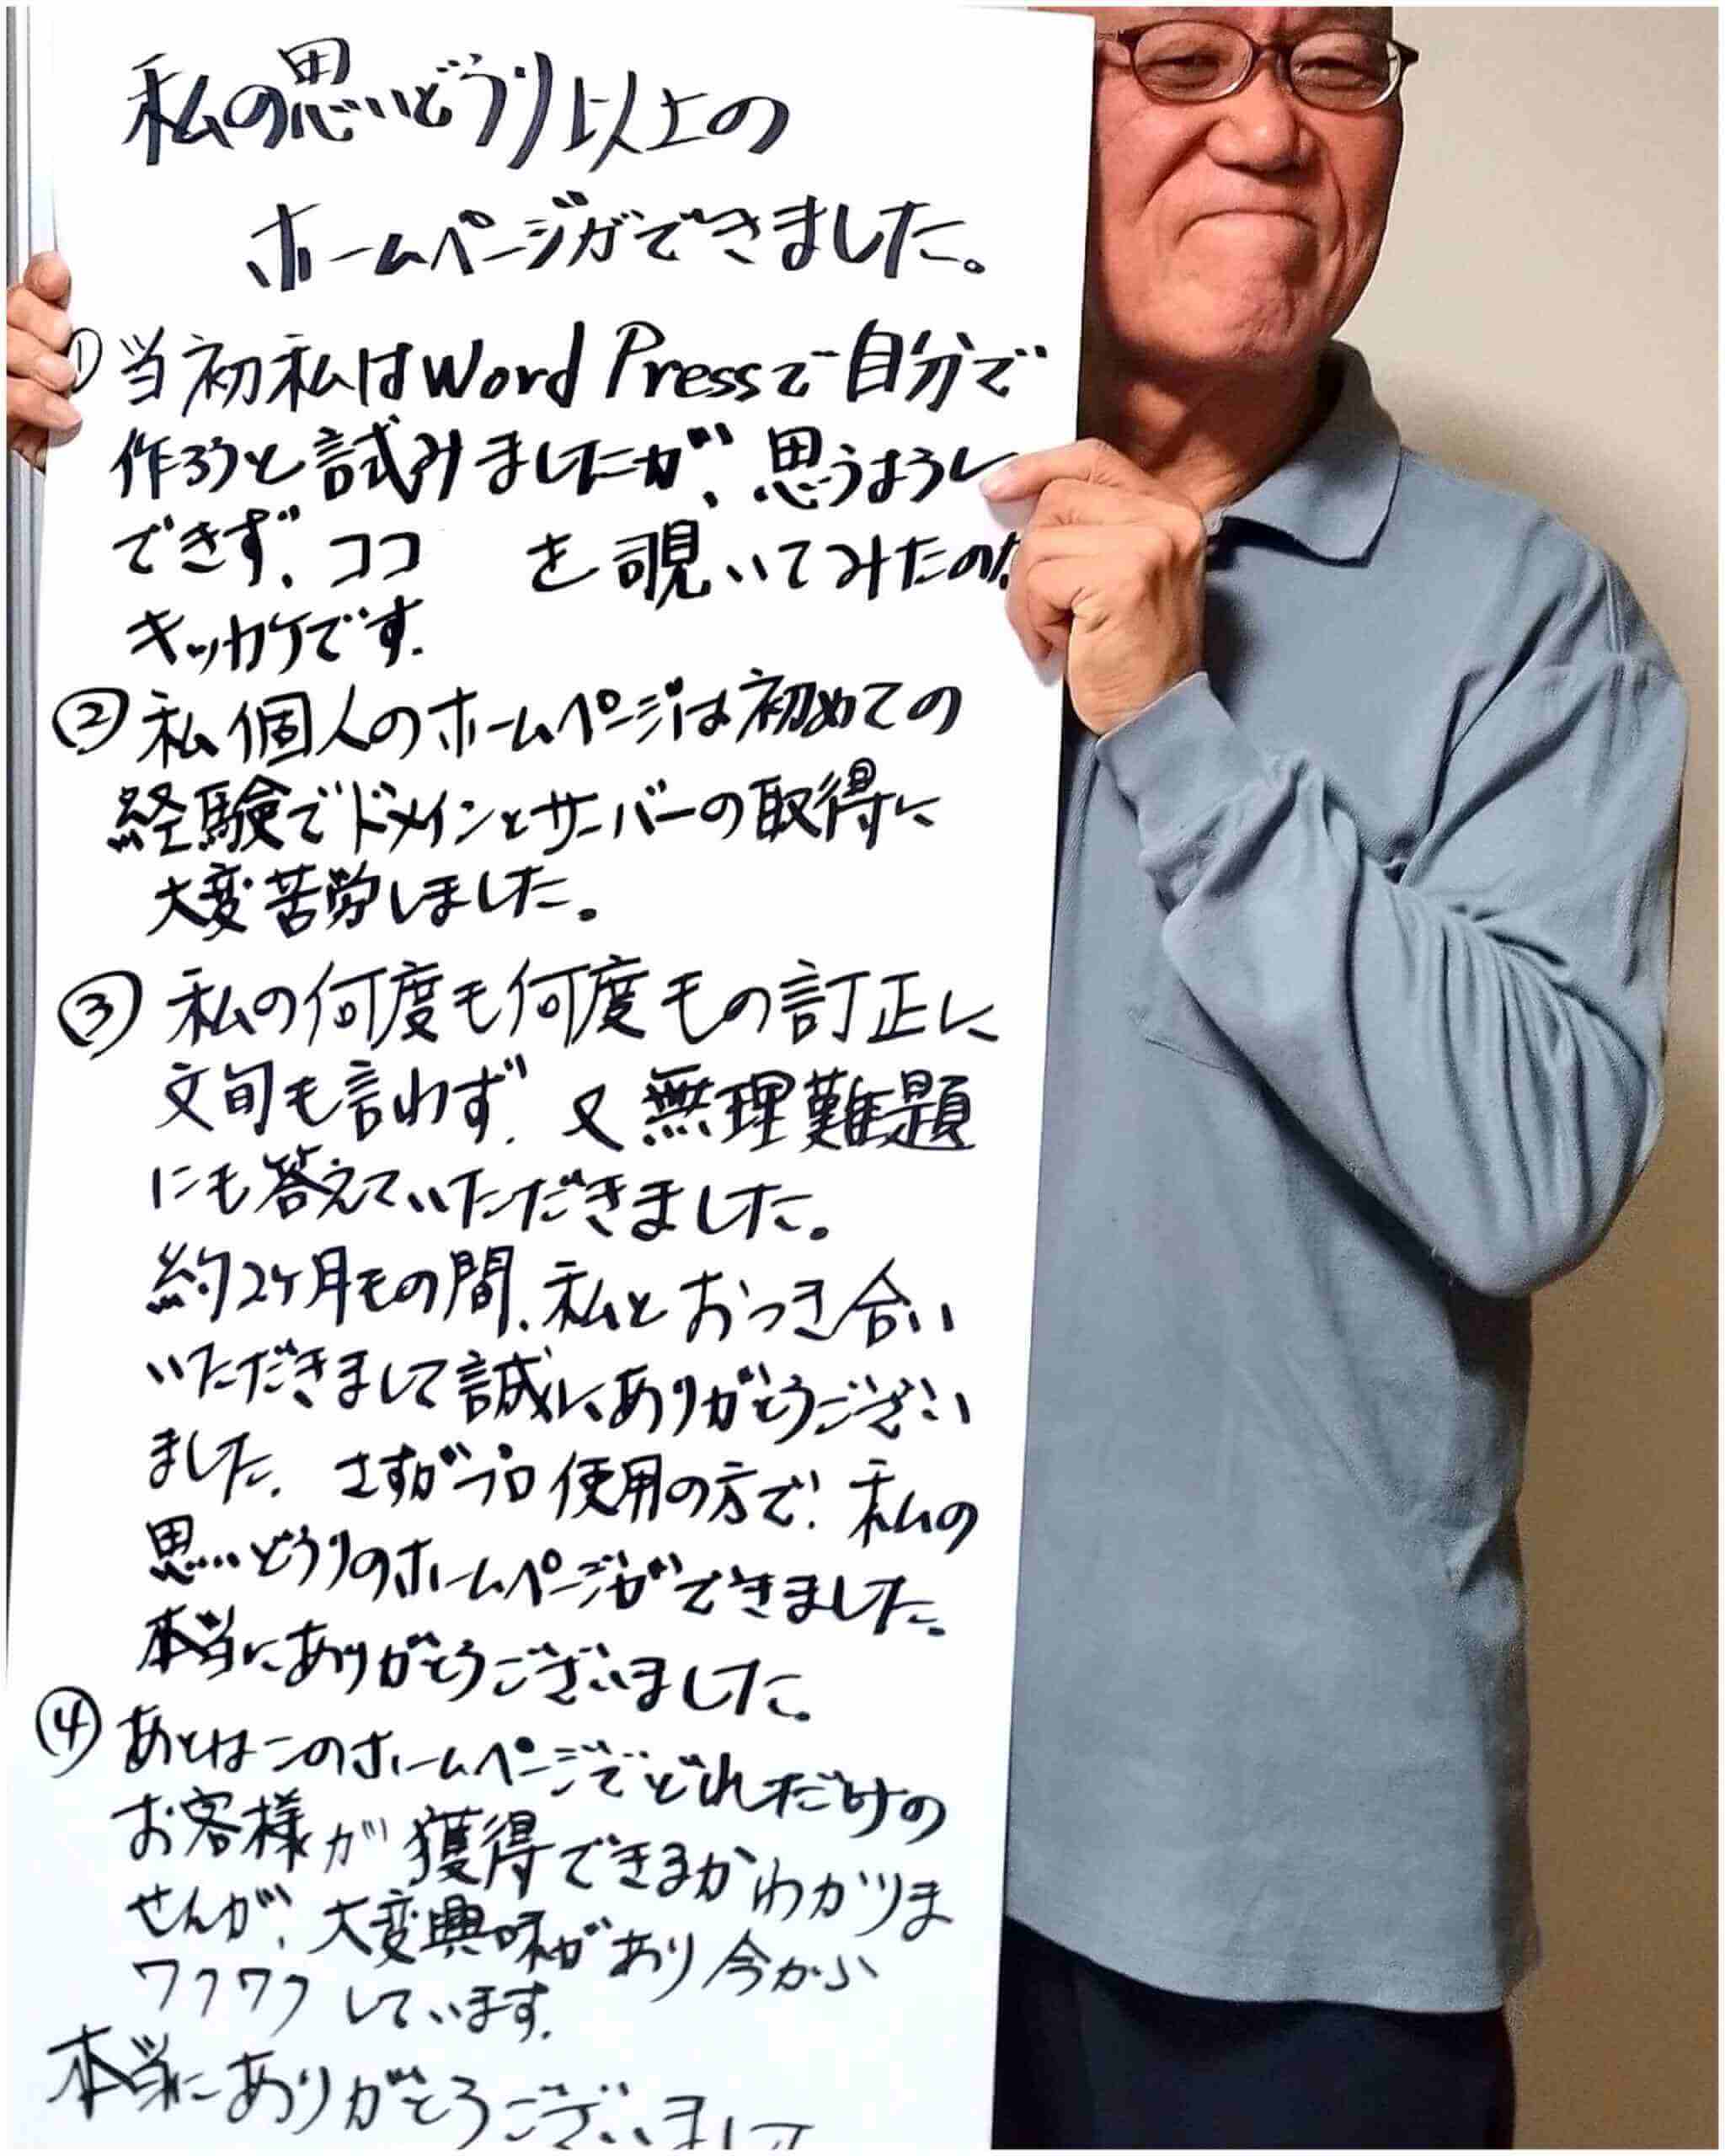 私の思いどうり以上の
ホームページができました。
① 当初私はWord Pressで自分で
作ろうと試みましたが、思うように
できず、ココ を覗いてみたのが
キッカケです.
② 私個人のホームページは初めての
経験でドメインとサーバーの取得に
大変苦労しました。
③ 私の何度も何度もの訂正に
文句も言わず、又無理難題
にも答えていただきました。
約2ヶ月もの間、私とおつき合い
いただきまして誠にありがとうござい
ました. さすがプロ使用の方で、私の
思いどうりのホームページができました。
本当にありがとうございました。
④ あとはこのホームページでどれだけの
お客様が獲得できるかわかりま
せんが、大変興味があり今から
ワクワクしています.
本当にありがとうございまして